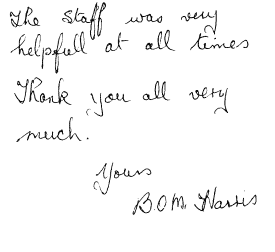 The Staff was very
helpfull at all times
Thank you all very
much.
Yours
B.O.M. Harris